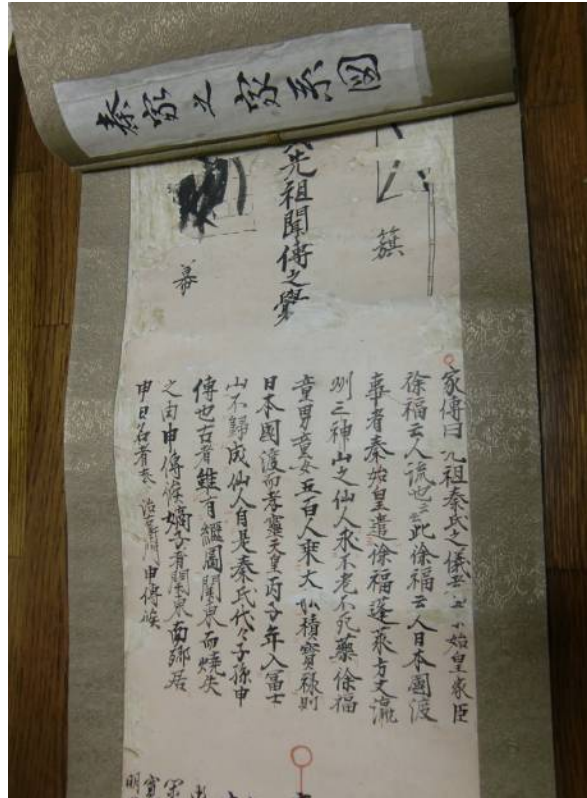 秦家之家系図
旗
先祖聞傳之覺
幕
家傳曰元祖秦氏之儀者 始皇家臣
徐福云人流也云此徐福云人日本國渡
事者秦始皇遣徐福蓬萊方丈瀛
洲三神山之仙人求不老不死藥徐福
童男童女五百人乗大 積寳禄則
日本國渡而孝靈天皇丙子年入冨士
山不歸成仙人自是秦氏代々子孫申
傳也古者雖有繼圖關東而燒失
之由申傳候嫡子者關東面郷居
申由名者秦 申傳候